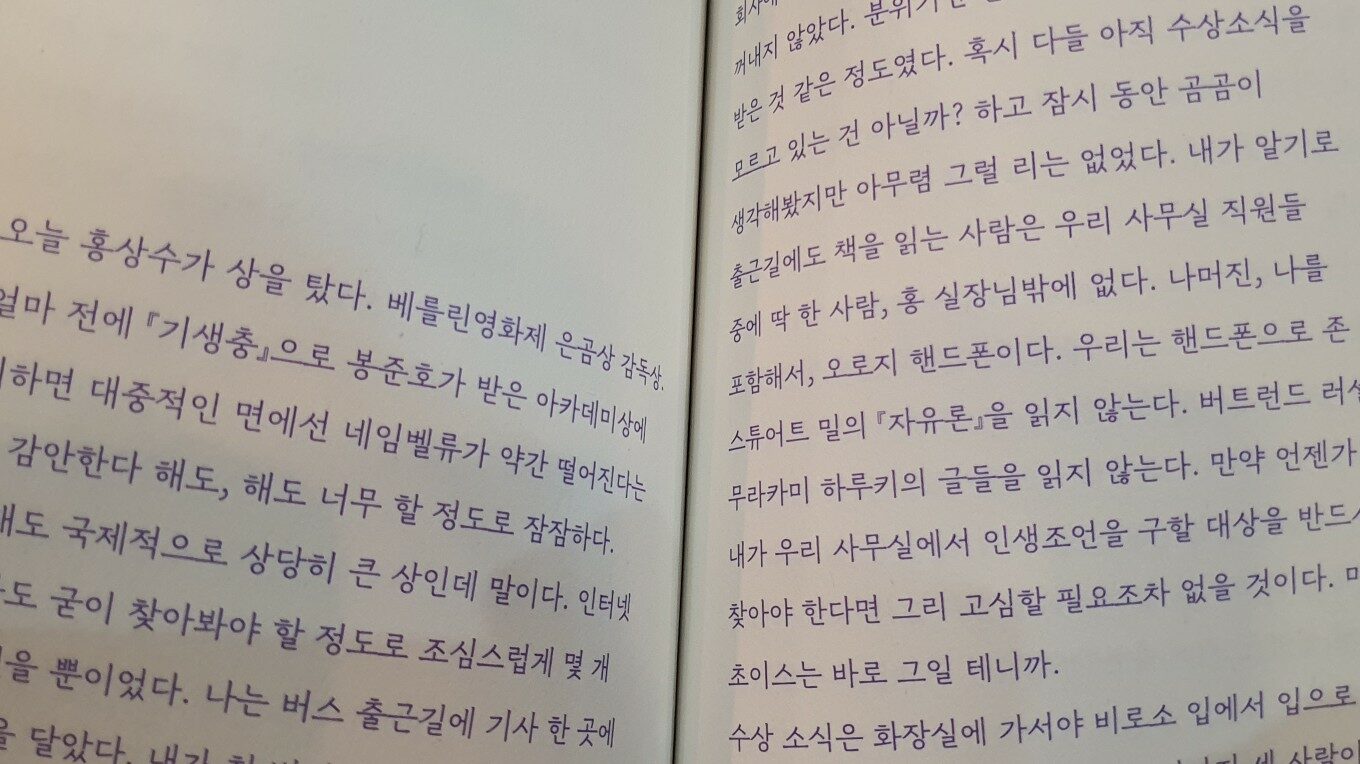 오늘 홍상수가 상을 탔다. 베를린영화제 은곰상 감독상.
얼마 전에 『기생충』으로 봉준호가 받은 아카데미상에
하면 대중적인 면에선 네임벨류가 약간 떨어진다는
감안한다 해도, 해도 너무 할 정도로 잠잠하다.
국제적으로 상당히 큰 상인데 말이다. 인터넷
굳이 찾아봐야 할 정도로 조심스럽게 몇 개
뿐이었다. 나는 버스 출근길에 기사 한 곳에
달았다. 내가
꺼내지 않았다.
받은 것 같은 정도였다. 혹시 다들 아직 수상소식을
모르고 있는 건 아닐까? 하고 잠시 동안 곰곰이
생각해봤지만 아무렴 그럴 리는 없었다. 내가 알기로
출근길에도 책을 읽는 사람은 우리 사무실 직원들
중에 딱 한 사람, 홍 실장님밖에 없다. 나머진, 나를
포함해서, 오로지 핸드폰이다. 우리는 핸드폰으로 존
스튜어트 밀의 『자유론』을 읽지 않는다. 버트런드
무라카미 하루키의 글들을 읽지 않는다. 만약 언젠가
내가 우리 사무실에서 인생조언을 구할 대상을
찾아야 한다면 그리 고심할 필요조차 없을 것이다.
초이스는 바로 그일 테니까.
수상 소식은 화장실에 가서야 비로소 입에서 입으로
세 사람이